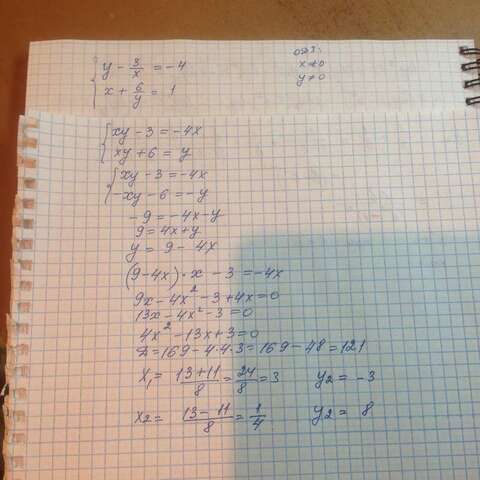 y - 3/x = -4
x + 6/y = 1
ОДЗ:
x ≠ 0
y ≠ 0
xy - 3 = -4x
xy + 6 = y
xy - 3 = -4x
-xy - 6 = -y
-9 = -4x - y
9 = 4x + y
y = 9 - 4x
(9 - 4x) · x - 3 = -4x
9x - 4x² - 3 + 4x = 0
13x - 4x² - 3 = 0
4x² - 13x + 3 = 0
D = 169 - 4·4·3 = 169 - 48 = 121
x₁ = (13 + 11)/8 = 24/8 = 3 y₂ = -3
x₂ = (13 - 11)/8 = 1/4 y₂ = 8